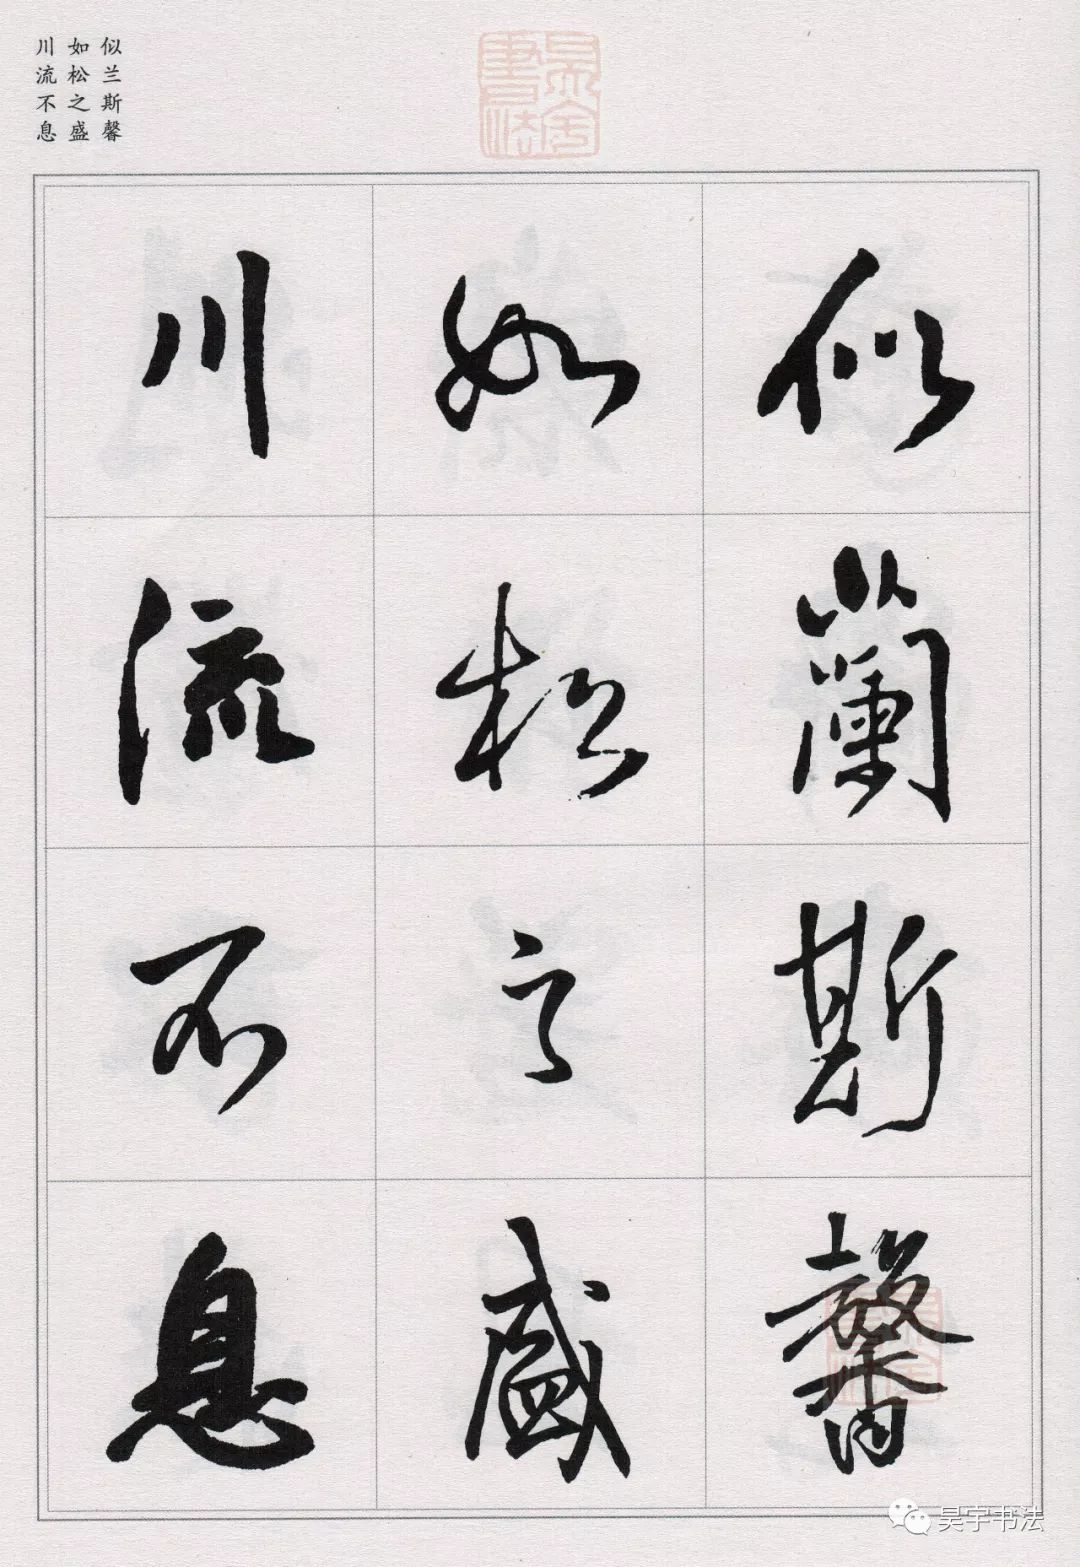 似兰斯馨
如松之盛
川流不息
吴宇書法
似蘭斯馨
如松之盛
川流不息
吴宇书法